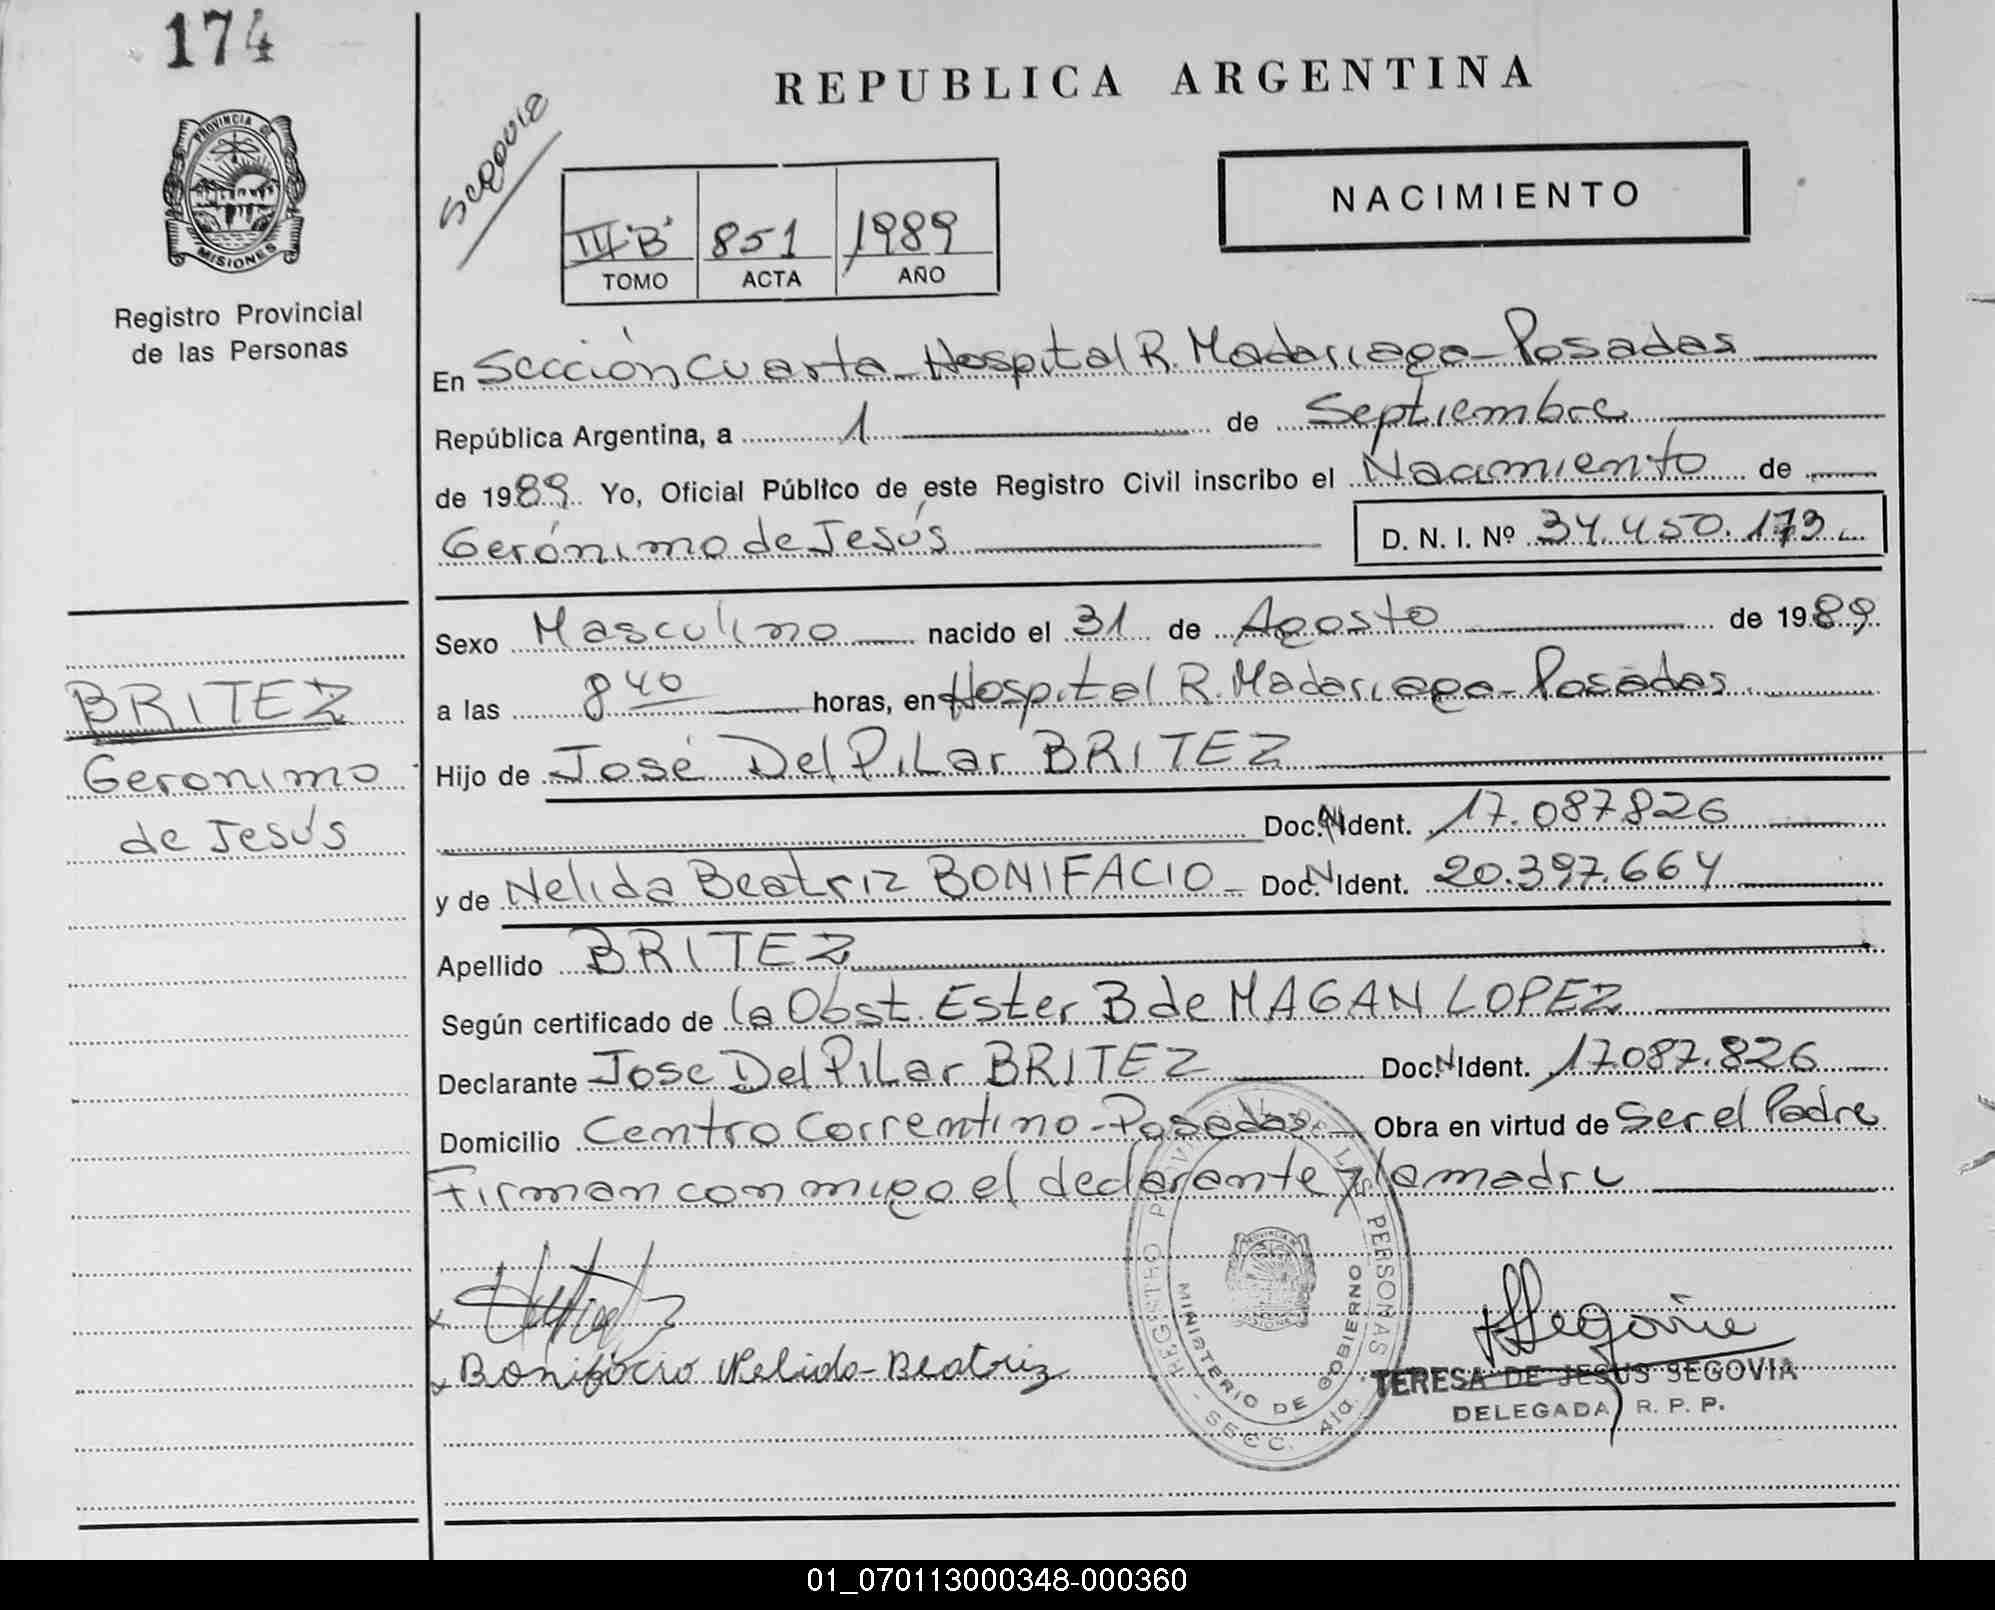 174
REPUBLICA ARGENTINA
PROVINCIA DE
MISIONES
Registro Provincial
de las Personas
Segovia
III "B" 851 1989
TOMO ACTA AÑO
NACIMIENTO
En Sección Cuarta - Hospital R. Madariaga - Posadas
República Argentina, a 1 de Septiembre
de 1989. Yo, Oficial Público de este Registro Civil inscribo el Nacimiento de
Gerónimo de Jesús D. N. I. Nº 34.450.173
Sexo Masculino nacido el 31 de Agosto de 1989
a las 8 40 horas, en Hospital R. Madariaga - Posadas
BRITEZ
Geronimo
de Jesús
Hijo de José Del Pilar BRITEZ
Doc. N Ident. 17.087826
y de Nelida Beatriz BONIFACIO - Doc. N Ident. 20.397.664
Apellido BRITEZ
Según certificado de la Obst. Ester B de MAGAN LOPEZ
Declarante Jose Del Pilar BRITEZ Doc. N Ident. 17.087.826
Domicilio Centro Correntino - Posadas Obra en virtud de Ser el Padre
Firman conmigo el declarante y la madre
Bonifacio Nelida - Beatriz
REGISTRO PROVINCIAL DE LAS PERSONAS
MINISTERIO DE GOBIERNO
SECC. 4ta.
Segovia
TERESA DE JESUS SEGOVIA
DELEGADA R. P. P.
01_070113000348-000360